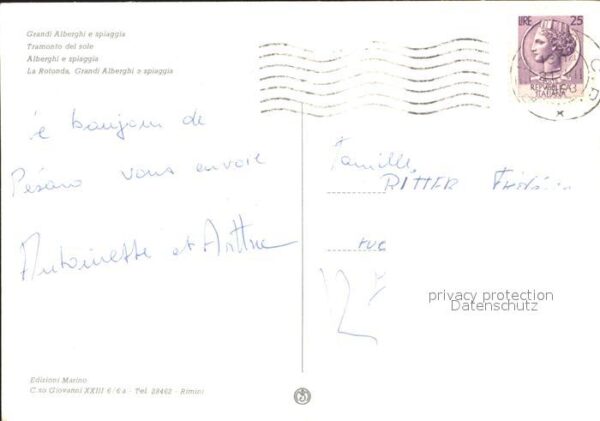 Grandi Alberghi e spiaggia
Tramonto del sole
Alberghi e spiaggia
La Rotonda, Grandi Alberghi e spiaggia
LIRE 25
REPVBBLICA
ITALIANA
bonjour de
Pésaro vous envoie
Antoinette et Arthur
Famille
RITTER
rue
privacy protection
Datenschutz
Edizioni Marino
C.so Giovanni XXIII 6/6a - Tel. 28462 - Rimini